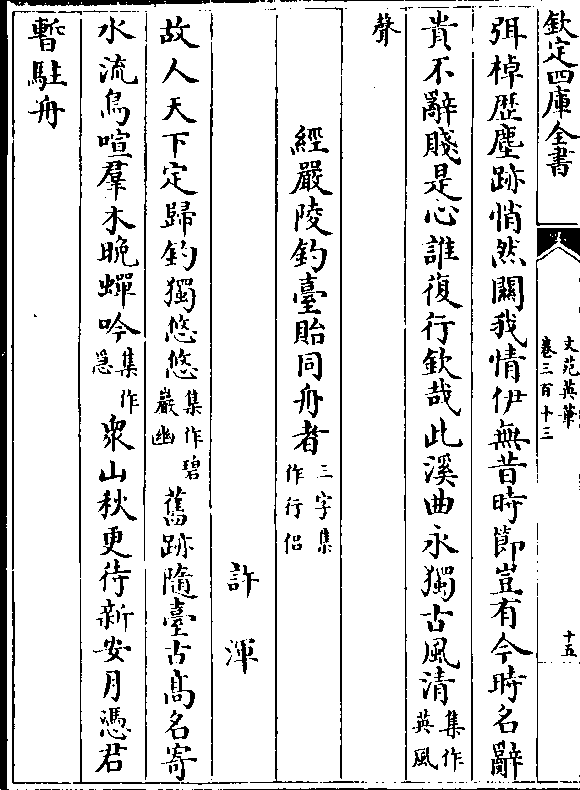 欽定四庫全書
文苑英華
卷三百十三
十五
弭棹歴塵跡悄然關我情伊無昔時節豈有今時名辭
貴不辭賤是心誰復行欽哉此溪曲永獨古風清集作英風
聲
經嚴陵釣臺貽同舟者三字集作行侶
許渾
故人天下定歸釣獨悠悠集作碧巖幽舊跡隨臺古髙名寄
水流鳥喧羣木晚蟬吟集作急衆山秋更待新安月憑君
暫駐舟